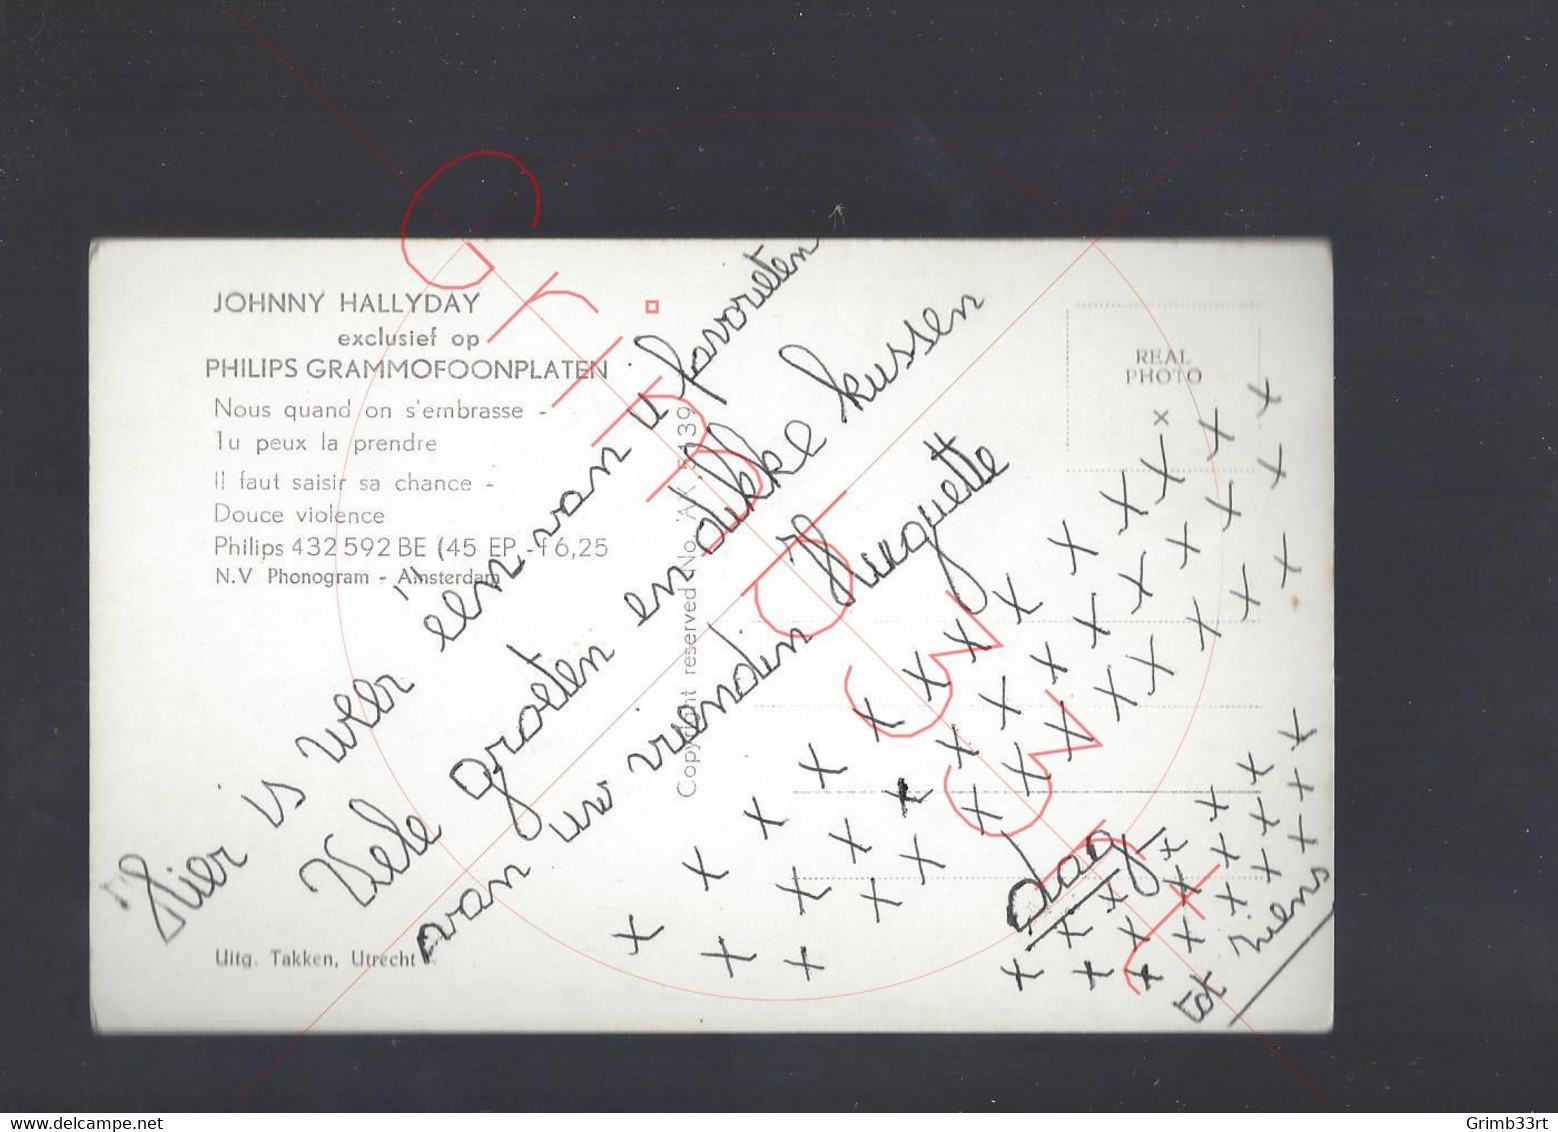 JOHNNY HALLYDAY
exclusief op
PHILIPS GRAMMOFOONPLATEN
Nous quand on s'embrasse -
Tu peux la prendre
Il faut saisir sa chance -
Douce violence
Philips 432 592 BE (45 EP - f 6,25
N.V Phonogram - Amsterdam
Uitg. Takken, Utrecht
Copyright reserved No. AX 5139
REAL
PHOTO
Hier is weer één van u favorieten
Vele groeten en dikke kussen
van uw vriendin Huguette
dag
tot ziens
Grimb33rt
delcampe.net
Grimb33rt